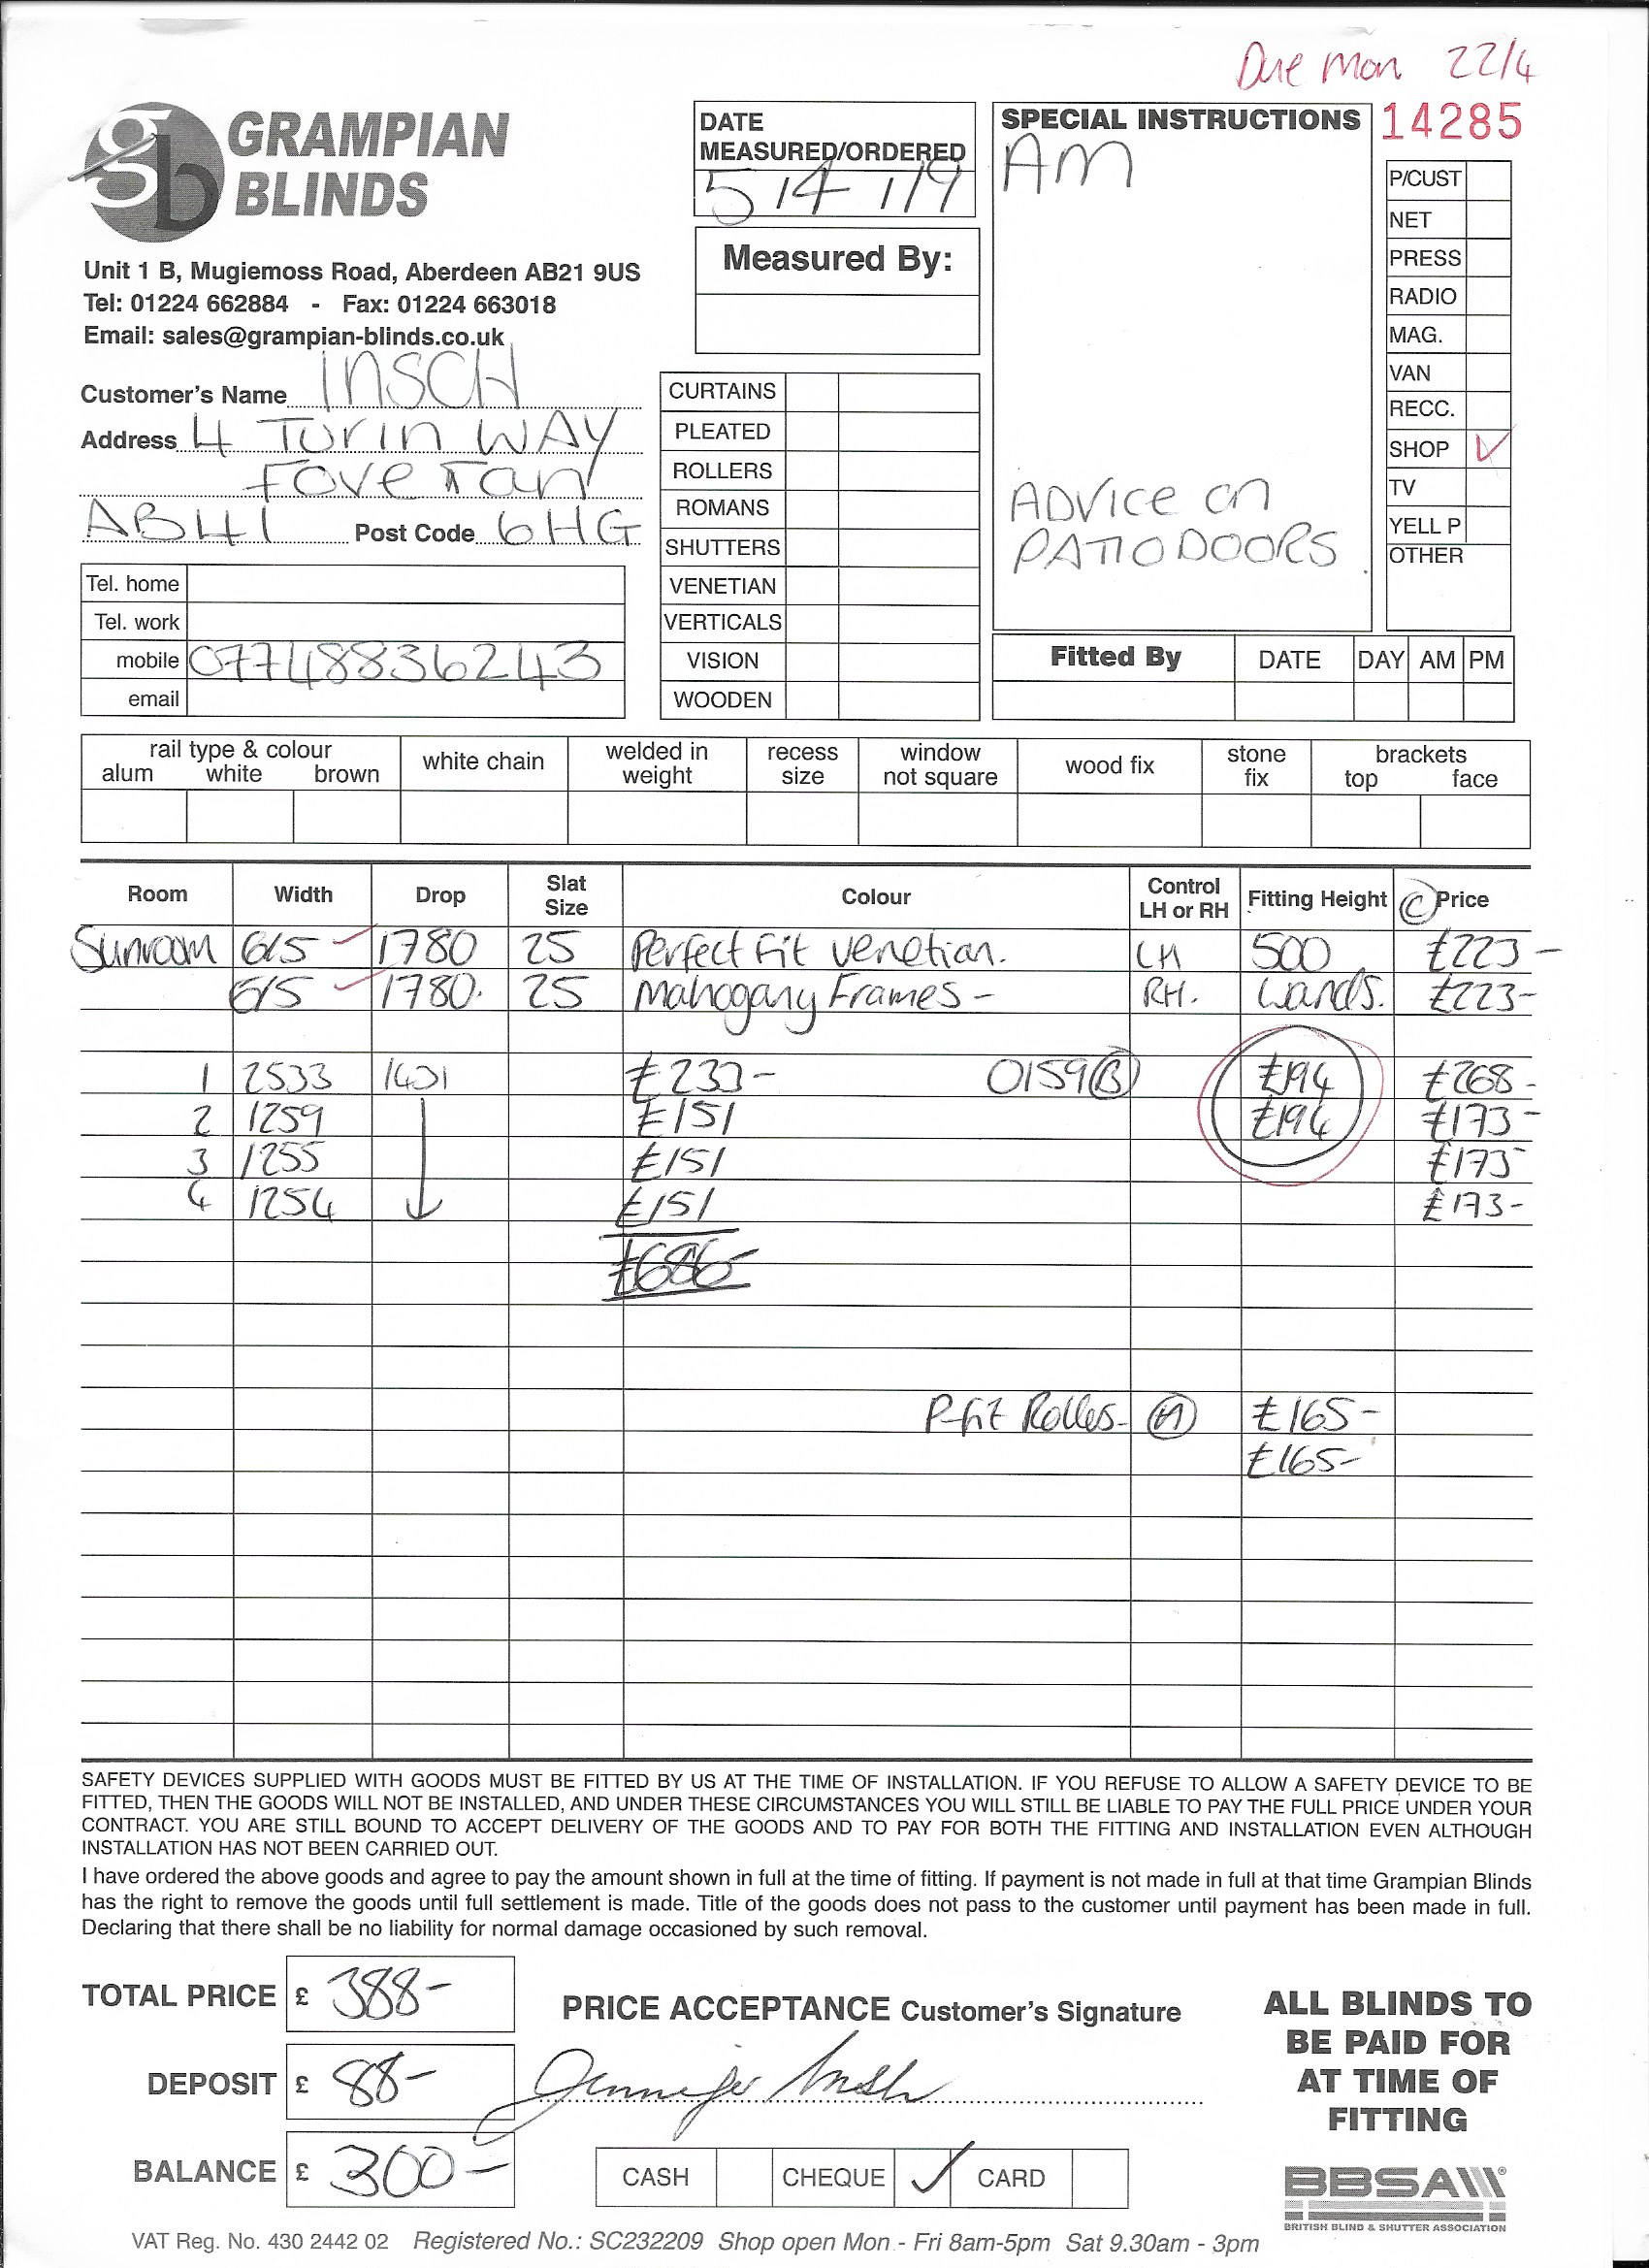 Due Mon 22/4
GRAMPIAN
BLINDS
Unit 1 B, Mugiemoss Road, Aberdeen AB21 9US
Tel: 01224 662884 - Fax: 01224 663018
Email: sales@grampian-blinds.co.uk
DATE
MEASURED/ORDERED
5/4/19
Measured By:
SPECIAL INSTRUCTIONS
AM
ADVICE on
PATIO DOORS
14285
P/CUST
NET
PRESS
RADIO
MAG.
VAN
RECC.
SHOP ✓
TV
YELL P
OTHER
Customer's Name INSCH
Address 4 TURIN WAY
Foveran
AB41 Post Code 6HG
Tel. home
Tel. work
mobile 07748836243
email
CURTAINS
PLEATED
ROLLERS
ROMANS
SHUTTERS
VENETIAN
VERTICALS
VISION
WOODEN
Fitted By DATE DAY AM PM
rail type & colour
alum white brown
white chain
welded in
weight
recess
size
window
not square
wood fix
stone
fix
brackets
top face
Room Width Drop Slat Size Colour Control LH or RH Fitting Height © Price
Sunroom 615 1780 25 Perfect Fit Venetian. LH 500 £223-
615 1780. 25 Mahogany Frames - RH. Wands. £223-
1 2533 1431 £233- 0159 B £194 £268-
2 1259 £151 £194 £173-
3 1255 £151 £173-
4 1254 £151 £173-
£686-
P-fit Rolles- £165-
£165-
SAFETY DEVICES SUPPLIED WITH GOODS MUST BE FITTED BY US AT THE TIME OF INSTALLATION. IF YOU REFUSE TO ALLOW A SAFETY DEVICE TO BE
FITTED, THEN THE GOODS WILL NOT BE INSTALLED, AND UNDER THESE CIRCUMSTANCES YOU WILL STILL BE LIABLE TO PAY THE FULL PRICE UNDER YOUR
CONTRACT. YOU ARE STILL BOUND TO ACCEPT DELIVERY OF THE GOODS AND TO PAY FOR BOTH THE FITTING AND INSTALLATION EVEN ALTHOUGH
INSTALLATION HAS NOT BEEN CARRIED OUT.
I have ordered the above goods and agree to pay the amount shown in full at the time of fitting. If payment is not made in full at that time Grampian Blinds
has the right to remove the goods until full settlement is made. Title of the goods does not pass to the customer until payment has been made in full.
Declaring that there shall be no liability for normal damage occasioned by such removal.
TOTAL PRICE £ 388-
DEPOSIT £ 88-
BALANCE £ 300-
PRICE ACCEPTANCE Customer's Signature
Jennifer Insch
CASH CHEQUE ✓ CARD
ALL BLINDS TO
BE PAID FOR
AT TIME OF
FITTING
BBSA
BRITISH BLIND & SHUTTER ASSOCIATION
VAT Reg. No. 430 2442 02 Registered No.: SC232209 Shop open Mon - Fri 8am-5pm Sat 9.30am - 3pm